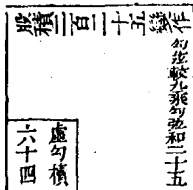 股積二百二十五變作
勾弦較九乘勾弦和二十五
虛勾積
六十四